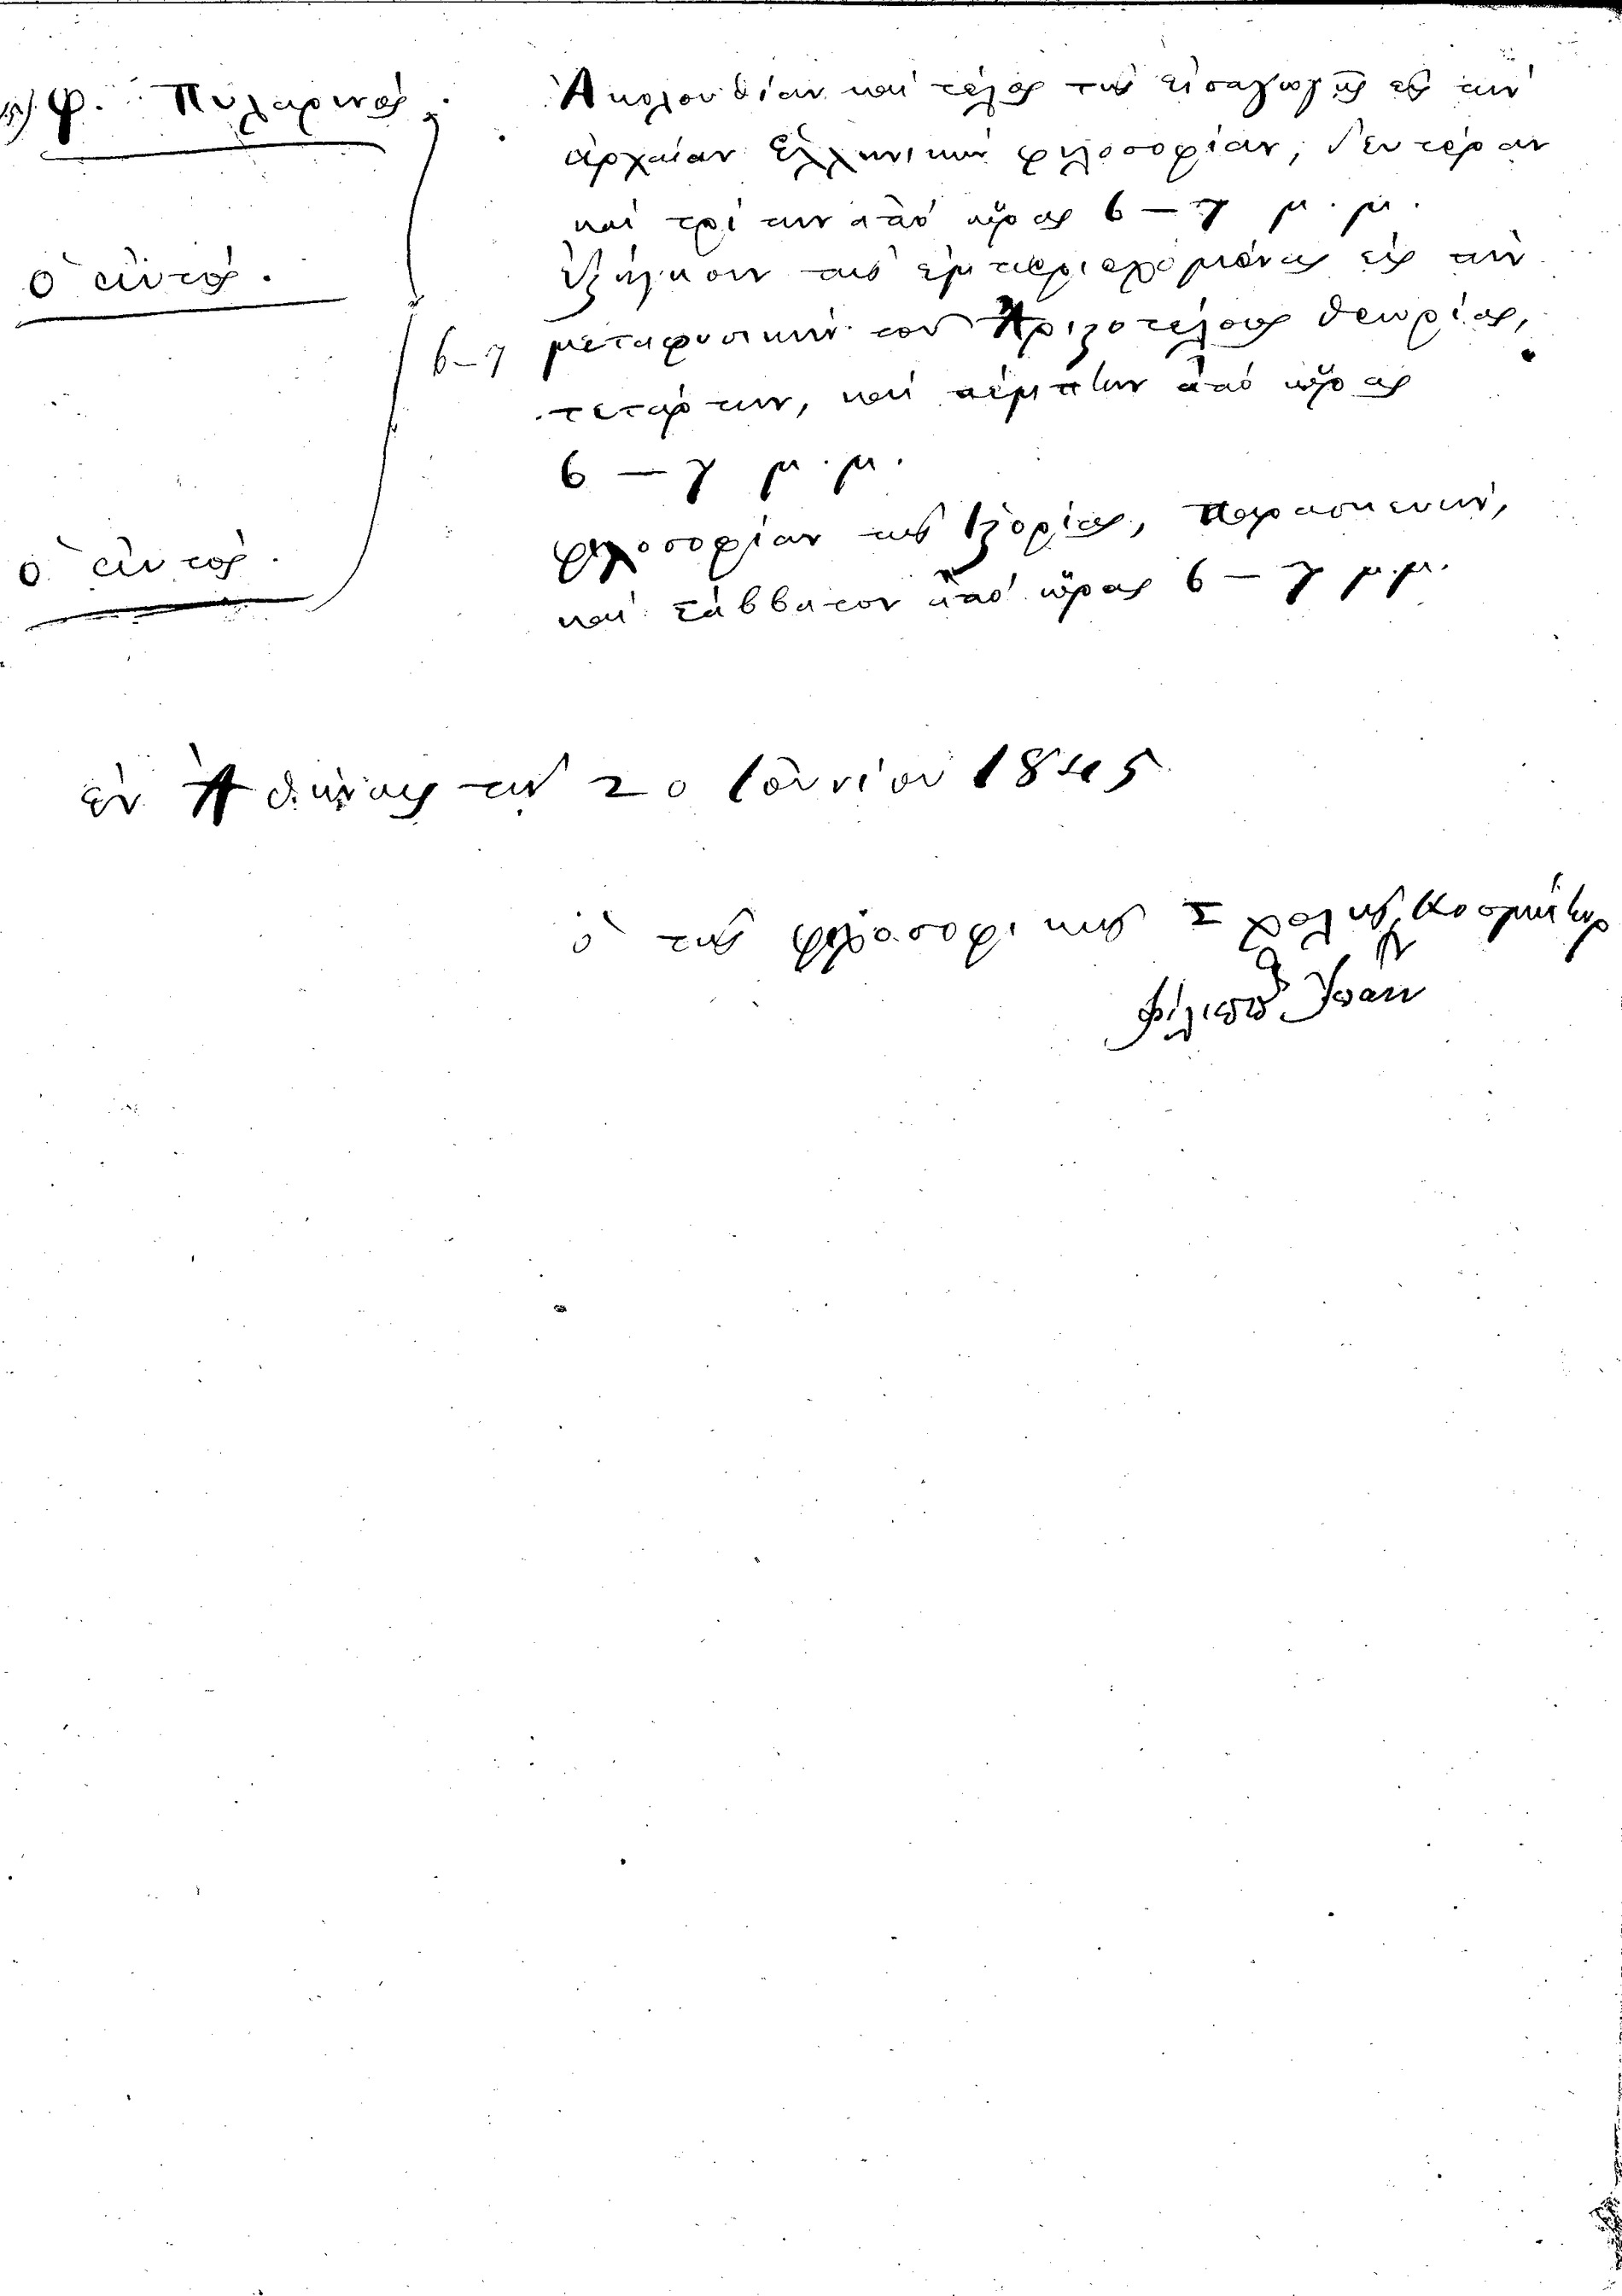 Φ. Πυλαρινός.
Ἀκολουθίαν καὶ τέλος τῆς εἰσαγωγῆς εἰς τὴν
ἀρχαίαν Ἑλληνικὴν φιλοσοφίαν, δευτέραν
καὶ τρίτην ἀπὸ ὥρας 6 – 7 μ. μ.
ὁ αὐτός.
ἐξήγησιν τῆς ἐμπεριεχομένης εἰς τὴν
6–7
μεταφυσικὴν τοῦ Ἀριστοτέλους θεωρίας,
τετάρτην, καὶ πέμπτην ἀπὸ ὥρας
6 – 7 μ. μ.
ὁ αὐτός.
φιλοσοφίαν τῆς ἱστορίας, παρασκευὴν,
καὶ Σάββατον ἀπὸ ὥρας 6 – 7 μ. μ.
ἐν Ἀθήναις τὴν 20 Ἰουνίου 1845
ὁ τῆς φιλοσοφικῆς Σχολῆς Κοσμήτωρ
Φίλιππος Ἰωάν